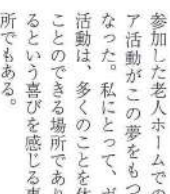 参加した老人ホームでの
ア活動がこの夢をもつ
なった。私にとって、ボ
活動は、多くのことを体
ことのできる場所であり
るという喜びを感じる事
所でもある。